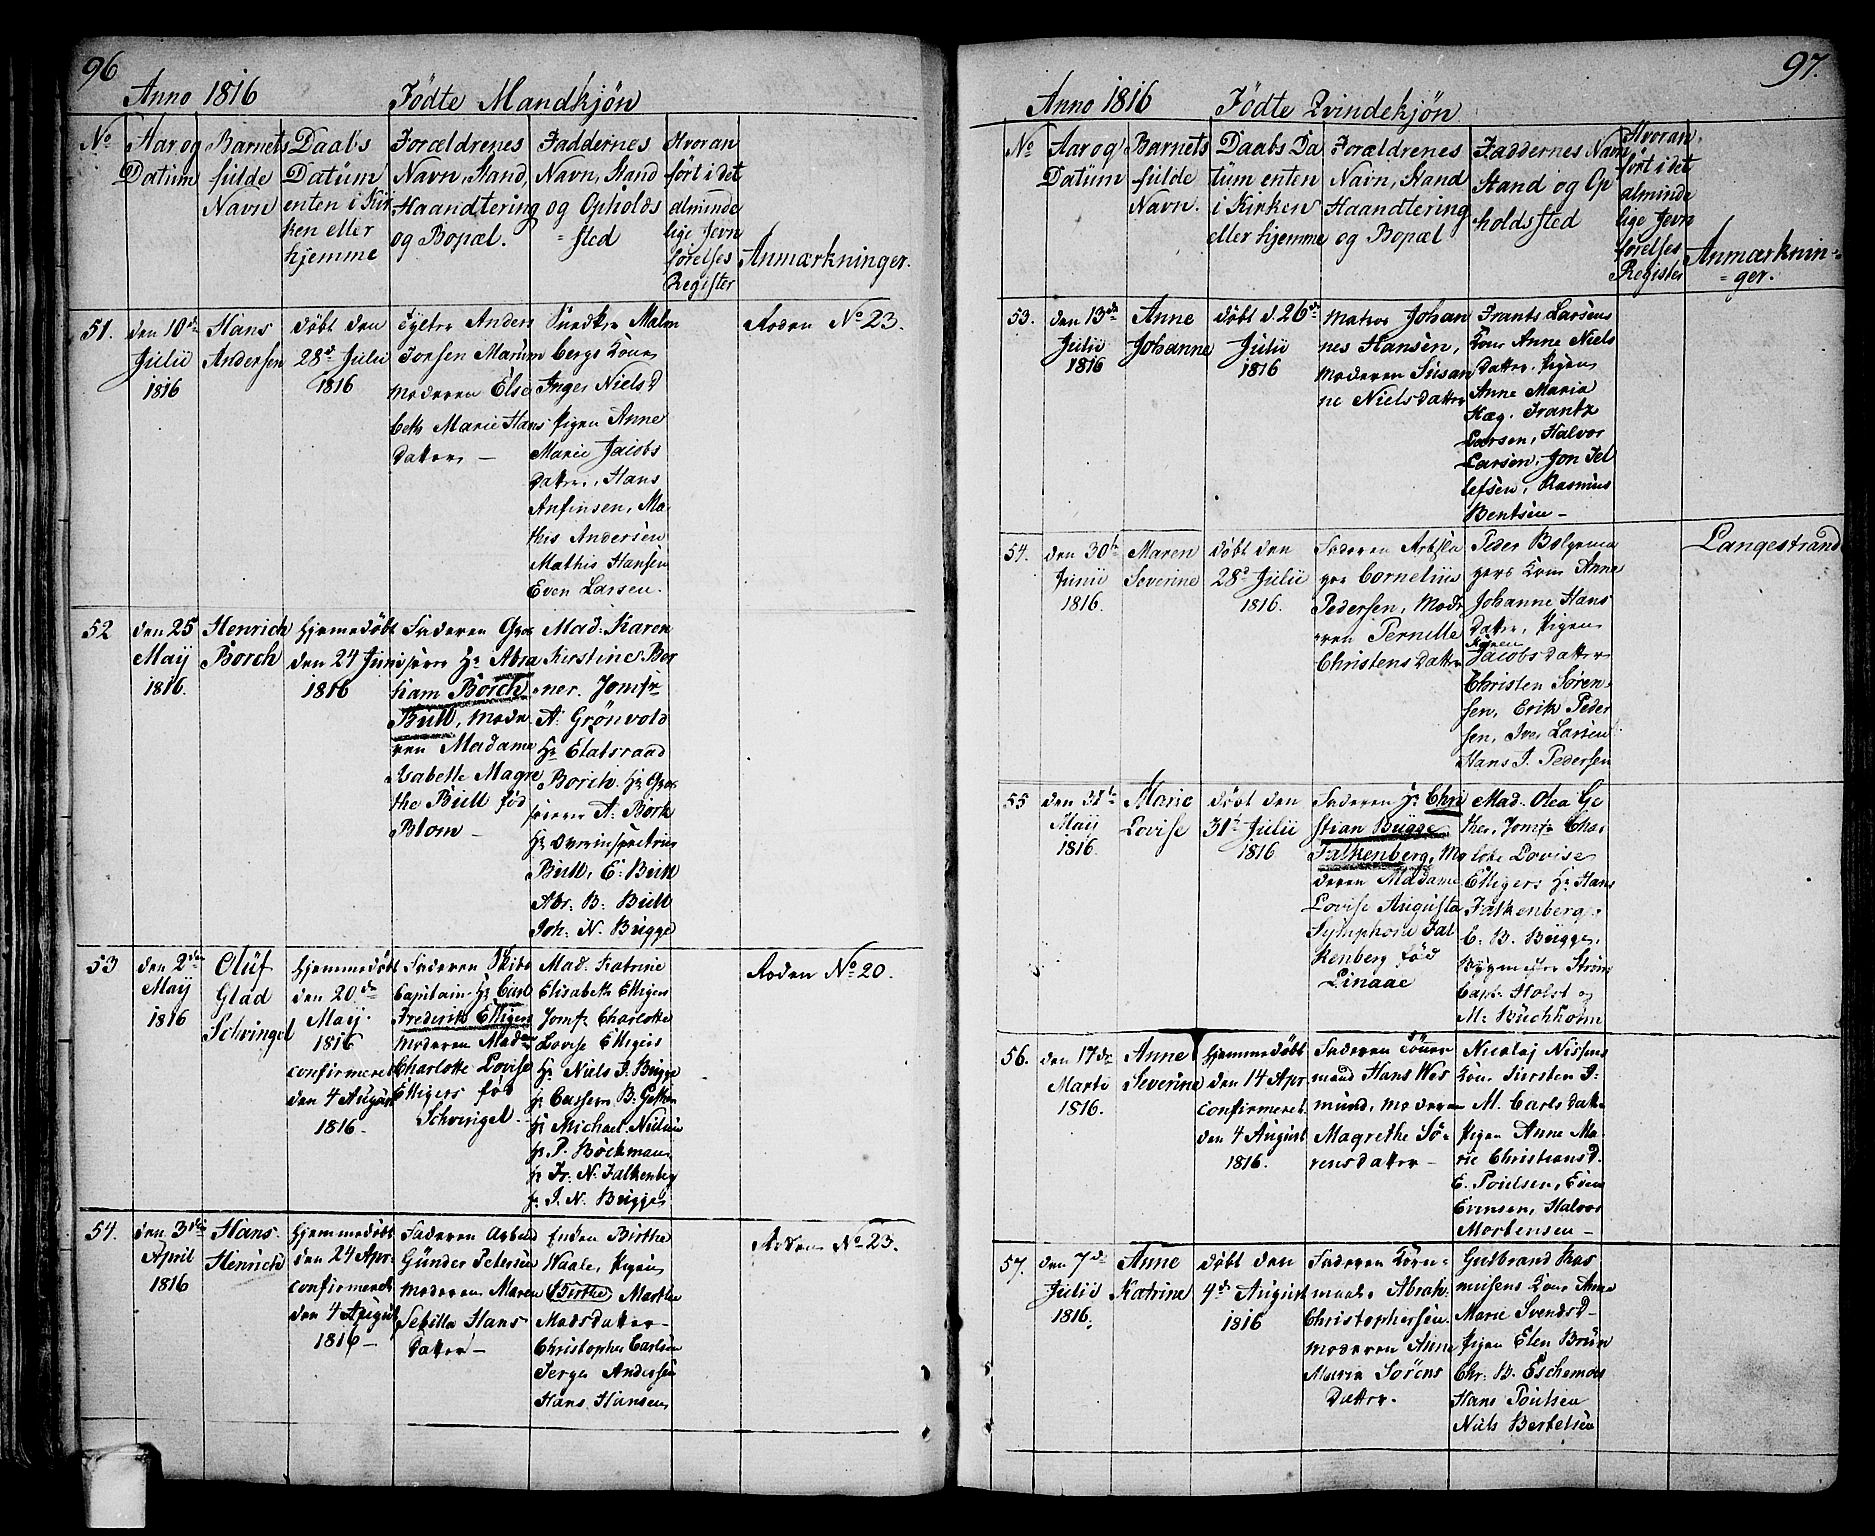 96
Anno 1816
Födte Mandkjön
No
Aar og
Datum
Barnets
fulde
Navn
Daabs
Datum
enten i Kir
ken eller
hjemme
Forældrenes
Navn, Stand,
Haandtering
og Bopæl.
Faddernes
Navn, Stand
og Opholds
= sted
Hvoran
fört i det
alminde
lige Jevn
förelses
Register
Anmærkninger.
51.
den 10de
Julii
1816
Hans
Andersen
döbt den
28d Julii
1816
Anders
Torsen
moderen Else
beth Marie Hans
datter –
Malm
bergs Kone
Inger Niels D
Pigen Anne
Marie Jacobs
datter, Hans
Anfinsen, Ma-
this Andersen
Mathis Hansen
Even Larsen.
No 23.
52
den 25
Maij
1816.
Henrich
Borch
hjemedöbt
den 24 Juni
1816
Faderen
Hr Abra
ham Borch
Bull, mode
ren Madame
Isabelle Magre
the Bull föd
Blom –
Mad. Karen
Kirstine Ber
ner. Jomfr
A. Grönvold
Hr Etatsraad
Borch. Hr
A. Bork
Hr
Bull, E. Bull
Abr. B. Bull
Joh. N. Bugge
53
den 2den
Maij
1816
Oluf
Glad
Schvingel
hjemmedöbt
den 20de
Maij.
1816
confirmeret
den 4 August
1816.
Faderen Skibs
Capitain Hr Carl
Frederik Elligers
moderen Mad
Charlotte Lovise
Elligers föd
Schvingel.
Mad. Katrine
Elisabeth Elligers
Jomfr Charlotte
Lovise Elligers
Hr Niels J. Bugge
B.
Hr Michael Nielsen
P. Böckman
Fr. N. Falkenberg
J. N. Bugge
No 20.
54.
den 3die
April
1816
Hans
Henrich
hjemmedöbt
den 24 Apr.
confirmeret
den 4 August
1816 –
Faderen
Gunder Petersen
moderen Maren
Sebilla Hans
datter –
Enken Birthe
Waale, Pigen
(Birthe) Marthe
Madsdatter –
Christopher Carlsen
Terge Andersen
Hans Hansen
No 23.
97.
Anno 1816
Födte Qvindekjön
No
Aar og
Datum
Barnets
fulde
Navn.
Daabs Da
tum enten
i Kirken
eller hjemme
Forældrenes
Navn, Stand
Haandtering
og Bopæl
Faddernes Navn
Stand og Op
holdssted
Hvoran
fört i det
alminde
lige Jevn
förelses
Register
Anmærknin-
= ger.
53.
den 13de
Julii
1816
Anne
Johanne
döbt d. 26de
Julii
1816
Johan
nes Hansen,
moderen Susan
ne Nielsdatter
Frants Larsens
Kone Anne Niels
datter. Pigen
Anne Maria
Hæg. Frantz
Larsen, Halvor
Larsen, Jon Tel
lefsen, Rasmus
Bentsen –
54.
den 30te
Junii
1816.
Maren
Severine
döbt den
28d Julii
1816.
Faderen
Cornelius
Pedersen, Mode
ren Pernille
Christensdatter
Peder
Kone Anne
Johanne Hans
datter, Pigen
Karen
Jacobsdatter
Christen Sören-
sen, Erik Peder
sen, Iver Larsen
Hans J. Pedersen
Langestrand
55
den 31te
Maij
1816.
Marie
Lovise
döbt den
31te Julii
1816
Faderen Hr Chri
stian Bugge
Falkenberg, Mo
deren Madame
Lovise Augusta
Symphorie Fal
kenberg föd
Linaae
Mad. Olea Ge
ther, Jomfr Char
lotte Lovise
Elligers Hr Hans
Falkenberg.
C. B. Bugge.
Bygmester Ström
Capt. Holst og
M. Buchholm
56.
den 17de
Marti
1816.
Anne
Severine
hjemmedöbt
den 14 Apr.
confirmeret.
den 4 August
1816.
Faderen Tömmer
mand Hans Wes
mund, moderen
Magrethe Sö-
rensdatter –
Nicolaj Nissens
Kone Kirsten J.
M. Carlsdatter
Pigen Anne Ma-
rie Christians D.
E. Poulsen, Even
Evensen, Halvor
Mortensen –
57.
den 7de
Julii
1816.
Anne
Katrine
döbt den
4de August
1816
Faderen
Abrah.
Christophersen
moderen Anne
Maria Sörens
datter.
Gulbrand Ras
musens Kone Anne
Marie Svends D –
Pigen Elen Brun
Chr. B. Eschemoes
Hans Poulsen
Niels Bertelsen